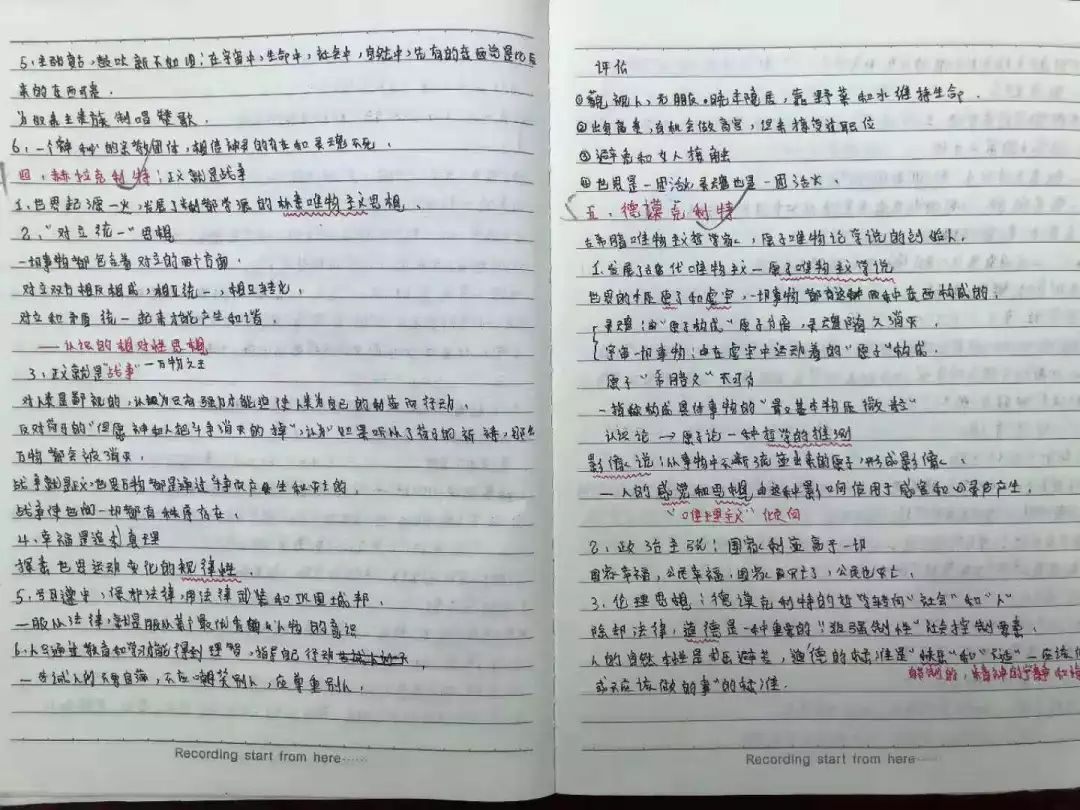 5.主张复古,鼓吹新不如旧:在宇宙中,生命中,社会中,自然中,先有的东西总是比后
来的东西可尊.
为奴隶主贵族制唱赞歌.
6.一个"神秘"的宗教团体,相信神灵的存在和灵魂不死.
四.赫拉克利特:正义就是战争
1.世界起源—火,发展了米利都学派的朴素唯物主义思想.
2."对立统一"思想
一切事物都包含着对立的两个方面.
对立双方相反相成,相互统一,相互转化.
对立和矛盾统一起来才能产生和谐.
——认识的相对性思想
3.正义就是"战争"—万物之王
对人类是鄙视的,认为只有强力才能迫使人类为自己的利益而行动.
反对荷马的"但愿神和人把斗争消灭的掉",认为"如果听从了荷马的祈祷,那么
万物都会被消灭.
战争就是正义,世界万物都是通过斗争而产生和灭亡的.
战争使世间一切都有秩序存在.
4.幸福是追求真理
探索世界运动变化的规律性.
5.节日遵守,保卫法律,用法律武装和巩固城邦.
—服从法律,就是服从某个最优秀人物的意识
6.人只通过教育和学习才能得到理智,指导自己行动
—告诫人们不要自满,不应嘲笑别人,应尊重别人.
评估
①藐视人,无朋友.晚年隐居,靠野菜和水维持生命.
②出身高贵,有机会做高官,但未接受这职位
③避免和女人接触
④世界是一团活火灵魂也是一团活火.
五.德谟克利特
古希腊唯物主义哲学家,原子唯物论学说的创始人.
1.发展了古代唯物主义—原子唯物主义学说
世界的本质原子和虚空,一切事物都有这种两种东西构成的:
灵魂:由"原子构成"原子分离,灵魂随之消灭.
宇宙一切事物:由在虚空中运动着的"原子"构成.
原子"希腊文"不可分
—指做构成具体事物的"最基本物质微粒"
认识论→原子论一种哲学的推测
影像说:从事物中不断流溢出来的原子,形成影像.
—人的感觉和思想由这种影响作用于感官和心灵而产生.
"唯理主义"倾向
2.政治主张:国家利益高于一切
国家幸福,公民幸福;国家灭亡了,公民也灭亡.
3.伦理思想:德谟克利特的哲学转向"社会"和"人"
除却法律,道德是一种重要的"非强制性"社会控制要素.
人的自然本性是求乐避苦,道德的标准是"快乐"和"不适"—应该做
或不应该做的事"的标准.
节制的,精神的宁静和
Recording start from here······
Recording start from here······